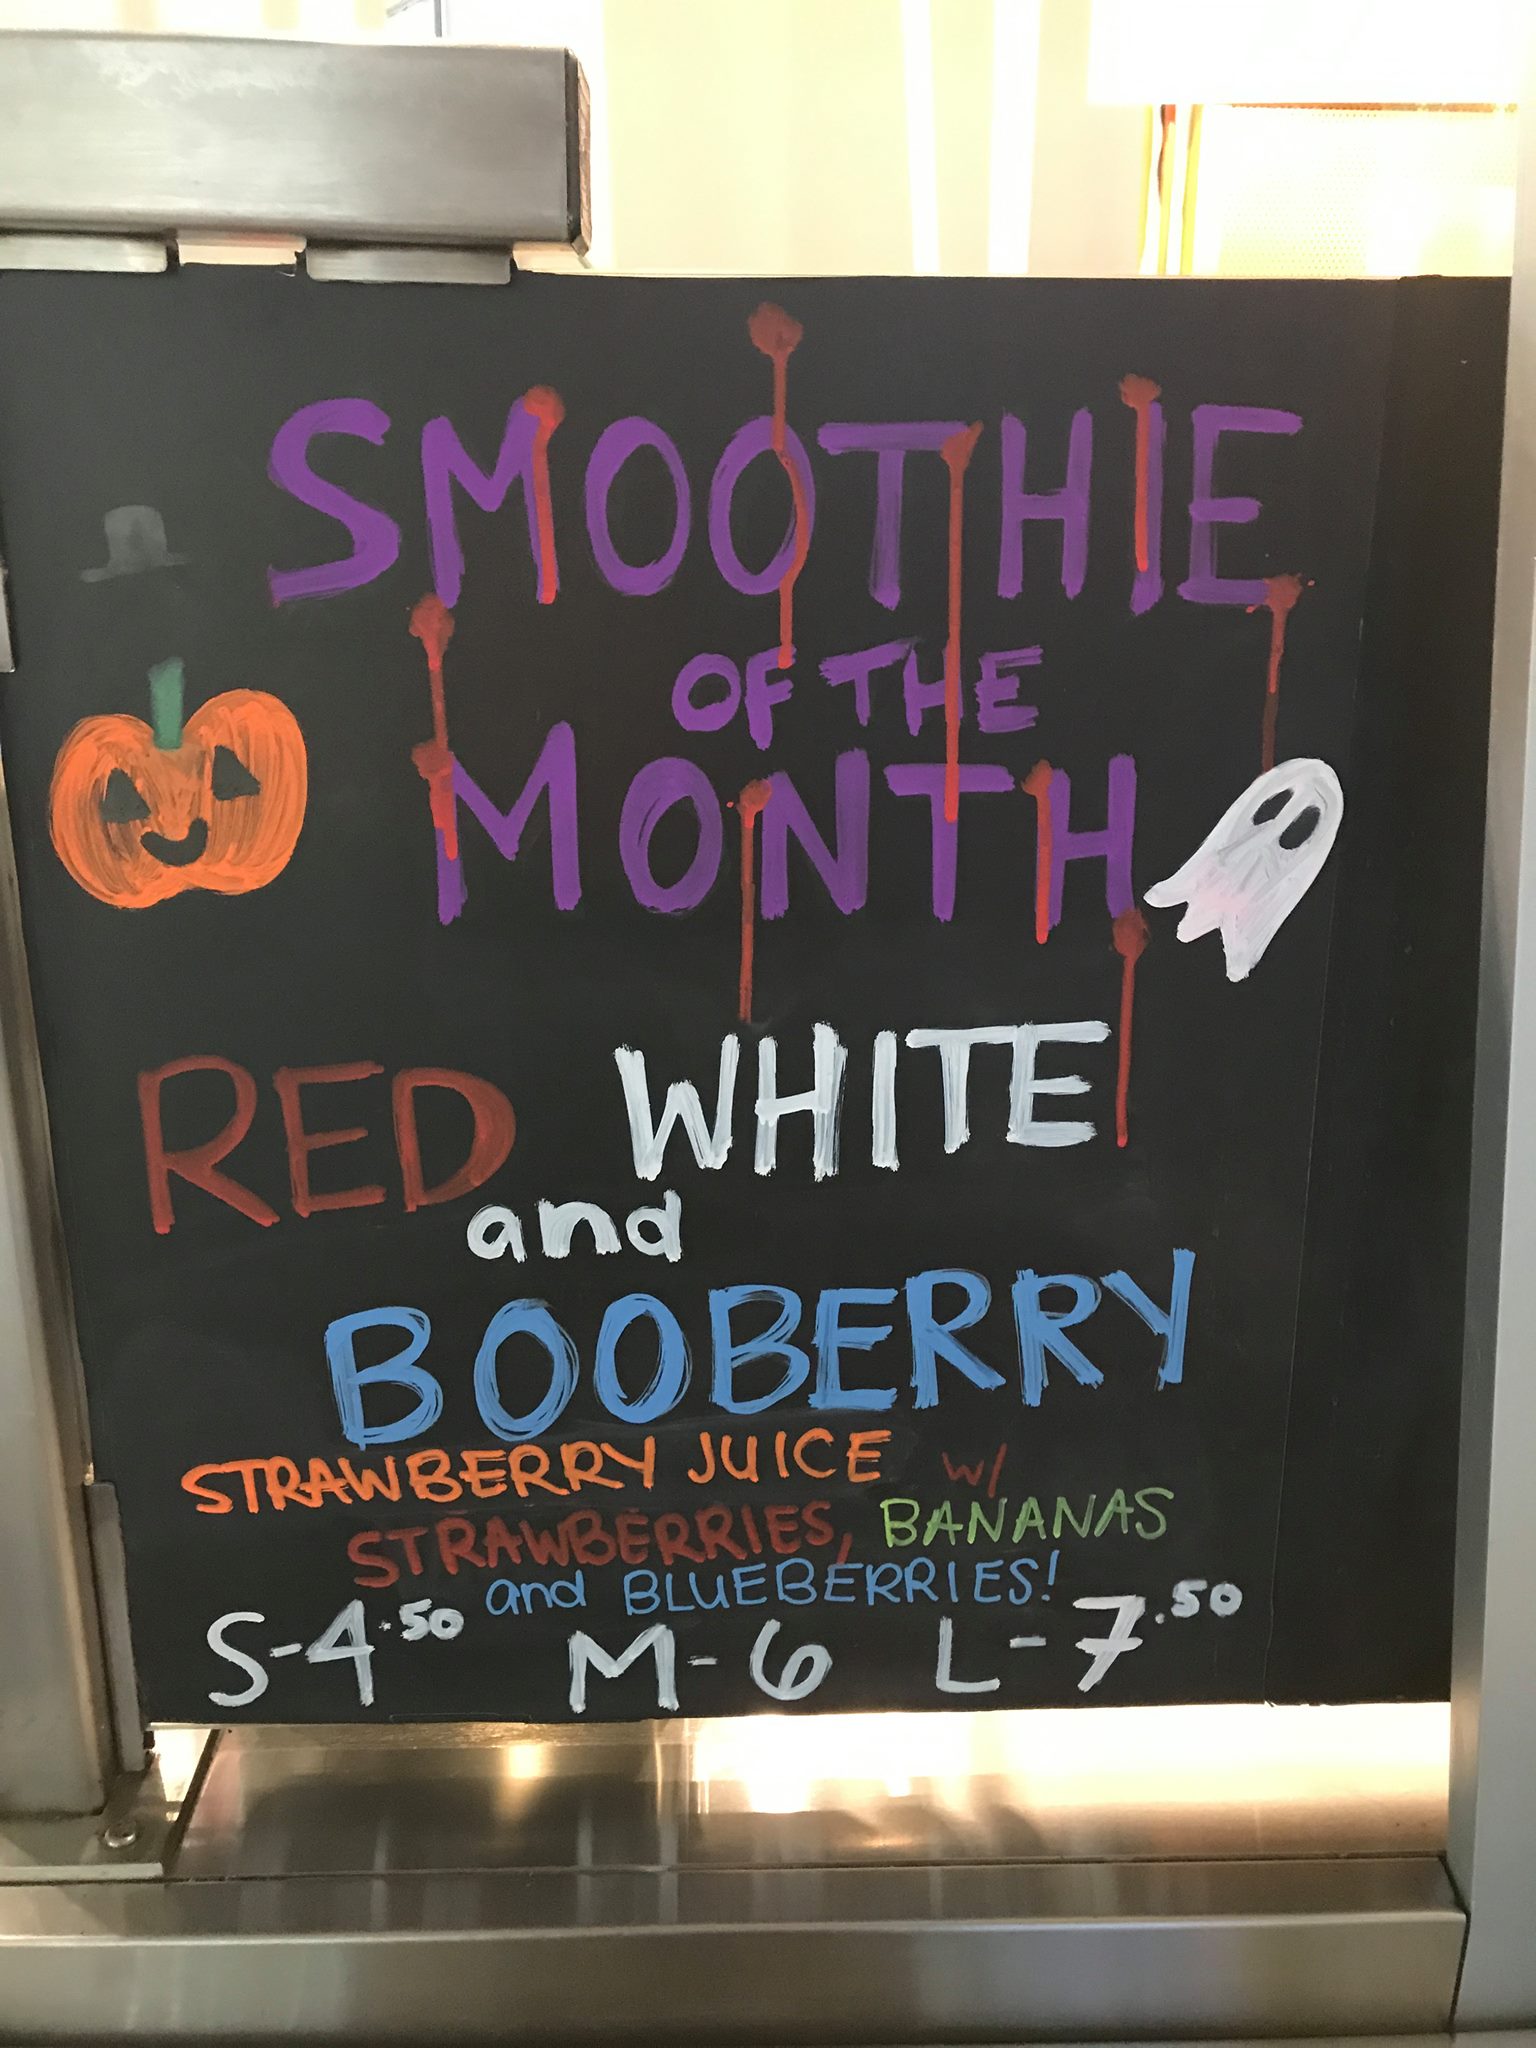 SMOOTHIE
OF THE
MONTH
RED WHITE
and
BOOBERRY
STRAWBERRY JUICE w/
STRAWBERRIES, BANANAS
and BLUEBERRIES!
S-4.50 M-6 L-7.50